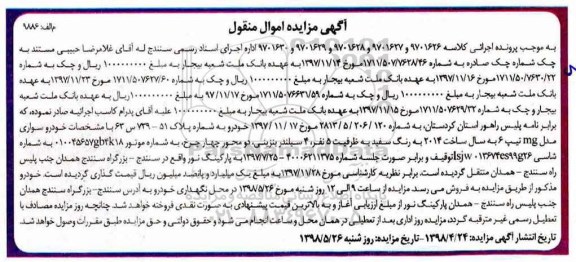 آگهی مزایده اموال منقول
م‌الف: ۹۸۸۶
به موجب پرونده اجرائی کلاسه ۹۷۰۱۶۲۶ و ۹۷۰۱۶۲۷ و ۹۷۰۱۶۲۸ و ۹۷۰۱۶۲۹ و ۹۷۰۱۶۳۰ اداره اجرای اسناد رسمی سنندج له آقای غلامرضا حبیبی مستند به
چک شماره چک صادره به شماره ۱۷۱۱/۵۰۷/۷۶۲۸/۴۶ مورخ ۱۳۹۷/۱۱/۱۴ به عهده بانک ملت شعبه بیجار به مبلغ ۱۰۰۰۰۰۰۰۰۰ ریال و چک به شماره
۱۷۱۱/۵۰۷/۷۶۳۰/۲۲ مورخ ۱۳۹۷/۱۱/۱۶ به عهده بانک ملت شعبه بیجار به مبلغ ۱۰۰۰۰۰۰۰۰۰ ریال و چک به شماره ۱۷۱۱/۵۰۷۶۲۷/۶۰ مورخ ۱۳۹۷/۱۱/۲۳ به عهده
بانک ملت شعبه بیجار به مبلغ ۱۰۰۰۰۰۰۰۰۰ ریال و چک به شماره ۱۷۱۱/۵۰۷۶۳۱/۵۹ مورخ ۹۷/۱۱/۱۷ به مبلغ ۱۰۰۰۰۰۰۰۰۰ ریال به عهده بانک ملت شعبه
بیجار و چک به شماره ۱۷۱۱/۵۰۷۶۲۹/۳۲ مورخ ۱۳۹۷/۱۱/۱۵ به عهده بانک ملت شعبه بیجار به مبلغ ۱۰۰۰۰۰۰۰۰۰ علیه پدرام کاسب اجرائیه صادر نموده، که
برابر نامه پلیس راهور استان کردستان، به شماره ۲۸۱۳/۵/۲۰۶/۱۲۰ مورخ ۱۳۹۷/۱۱/۱۷ خودرو به شماره پلاک ۵۱ – ۷۳۹س۶۳ با مشخصات خودرو سواری
مدل mg تیپ ۶ به سال ساخت ۲۰۱۴ به رنگ سفید به ظرفیت ۵ نفر، ۴ سیلندر بنزینی دو محور چهار چرخ، به شماره موتور
شاسی توقیف و برابر صورت جلسه شماره ۴۰۰۰۶۲۱۱۳۷۵ – ۱۳۹۷/۷/۲۵ به پارکینگ نور واقع در سنندج – بزرگراه سنندج همدان جنب پلیس
راه سنندج – همدان منتقل گردیده است. برابر نظریه کارشناسی مورخ ۱۳۹۷/۱۱/۲۸ به مبلغ یک میلیارد و پانصد میلیون ریال قیمت گذاری گردیده است. خودرو
مذکور از طریق مزایده به فروش می رسد. مزایده از ساعت ۹ الی ۱۲ روز شنبه مورخ ۱۳۹۸/۵/۲۶ در محل نگهداری خودرو به آدرس سنندج- بزرگراه سنندج همدان
جنب پلیس راه سنندج – همدان پارکینگ نور از مبلغ ارزیابی آغاز و به بالاترین قیمت پیشنهادی به صورت نقدی فروخته خواهد شد. چنانچه روز مزایده مصادف با
تعطیل رسمی غیر مترقبه گردد، مزایده روز اداری بعد از تعطیلی در همان محل و ساعت انجام می شود و حقوق دولتی و حق مزایده طبق مقررات وصول خواهد شد.
تاریخ انتشار آگهی مزایده: ۱۳۹۸/۴/۲۴ - تاریخ مزایده: روز شنبه ۱۳۹۸/۵/۲۶